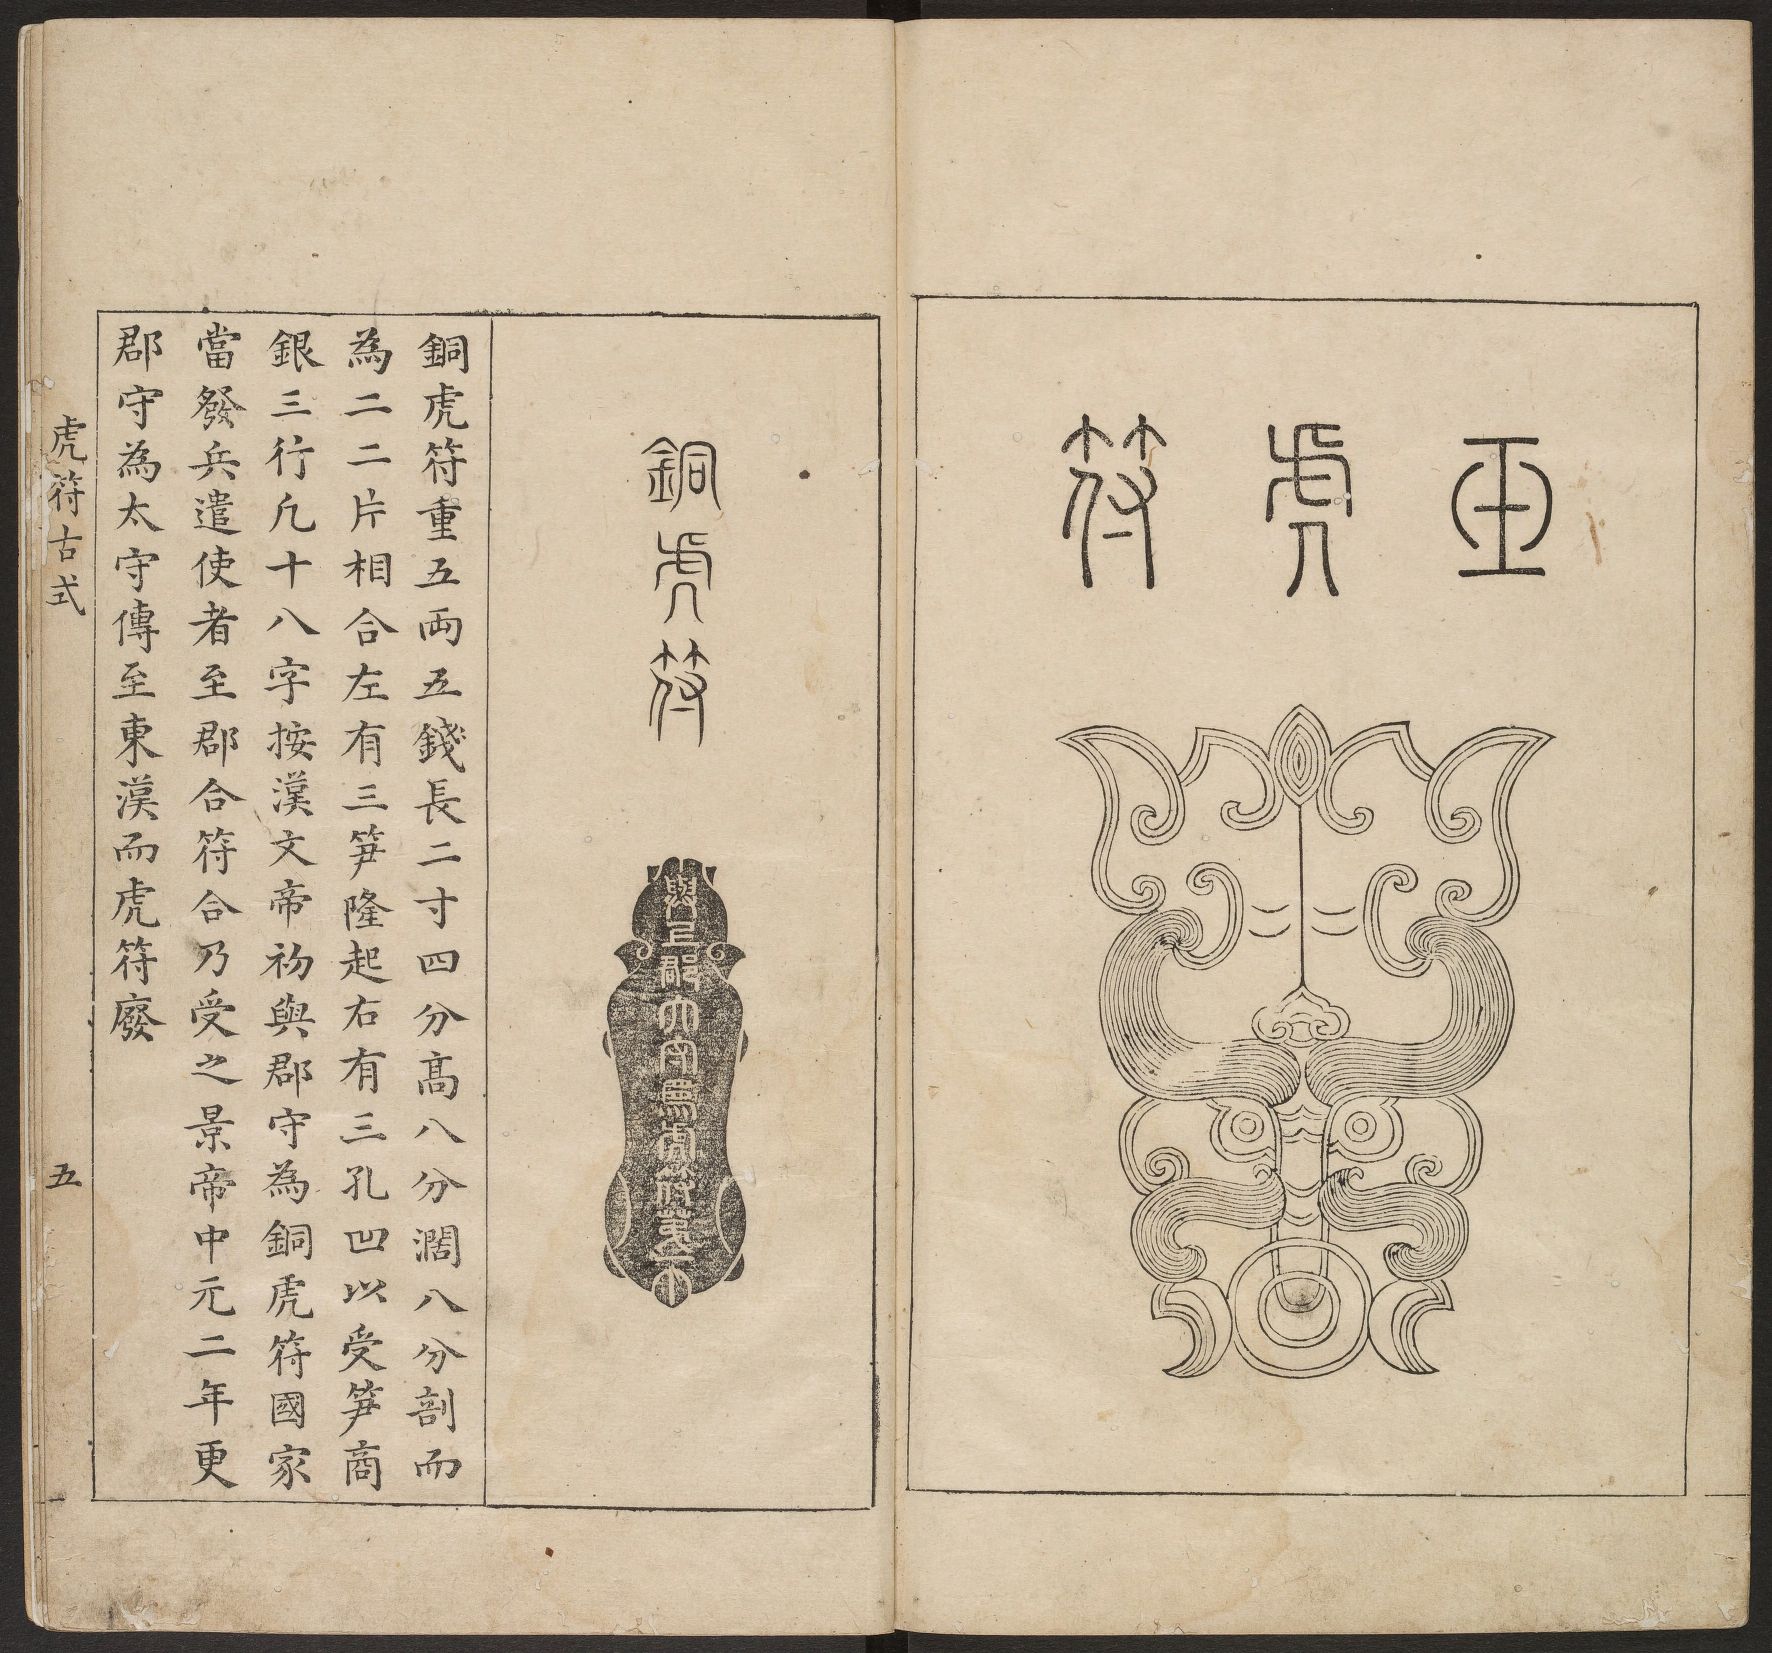 玉虎符
銅虎符
與郡太守為虎符第
銅虎符重五両五錢長二寸四分髙八分濶八分剖而
為二二片相合左有三笋隆起右有三孔凹以受笋商
銀三行凢十八字按漢文帝初與郡守為銅虎符國家
當發兵遣使者至郡合符合乃受之景帝中元二年更
郡守為太守傳至東漢而虎符廢
虎符古式
五